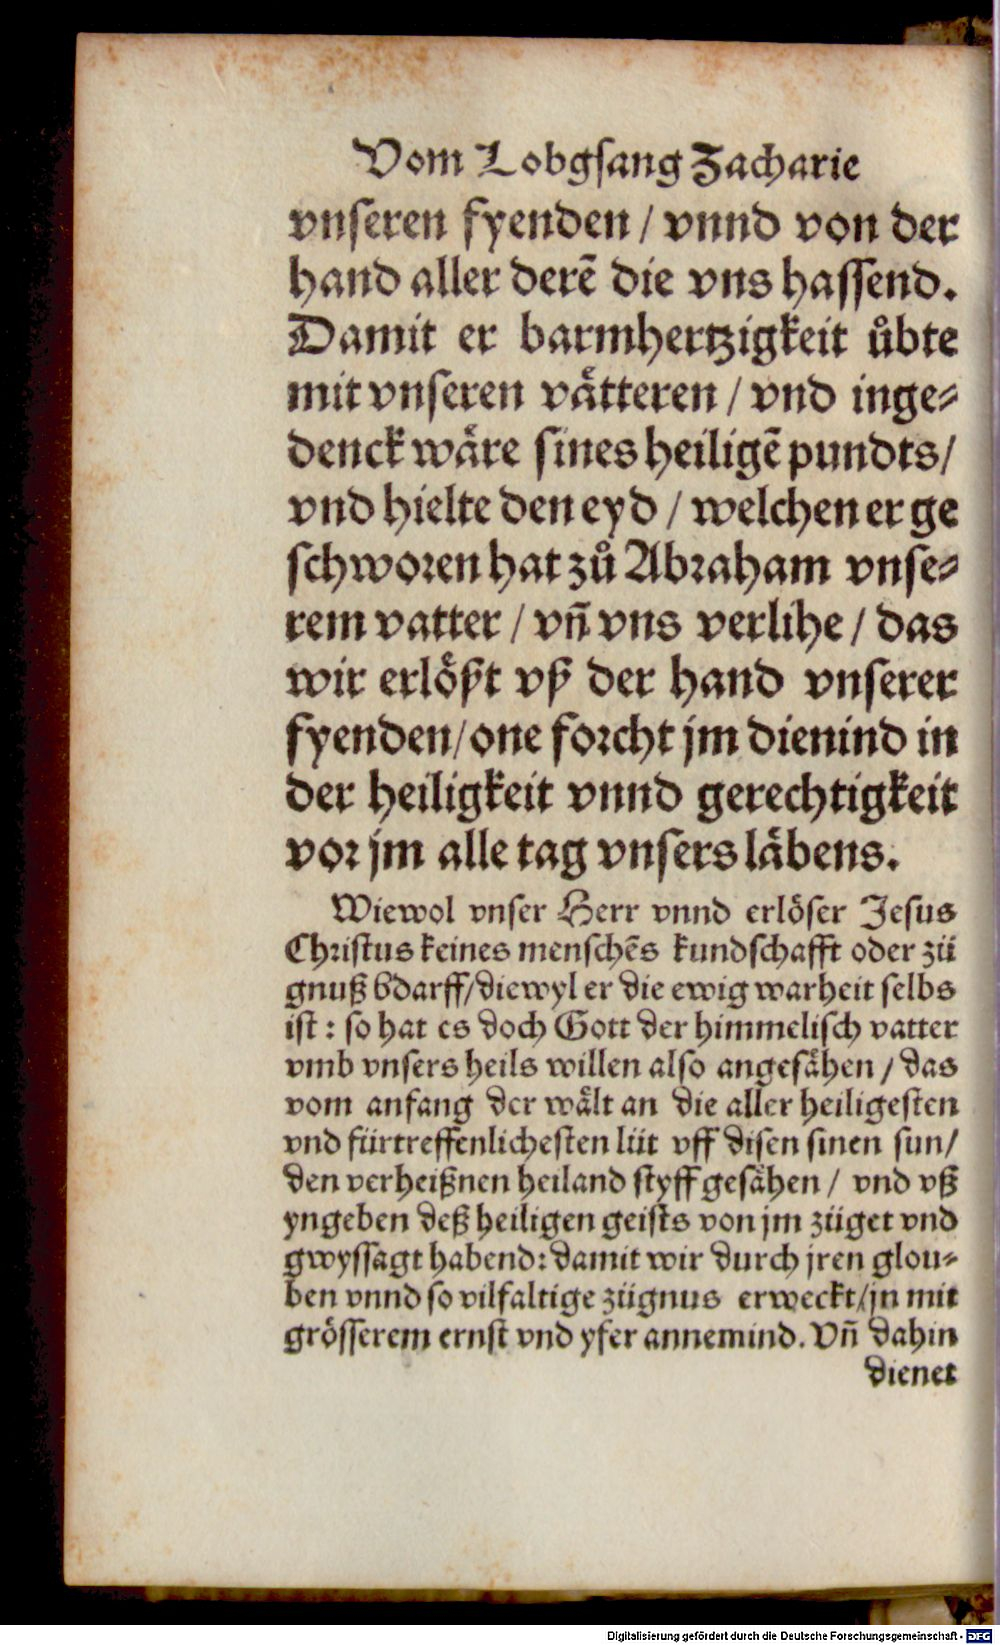 Vom Lobgsang Zacharie
vnseren fyenden / vnnd von der
hand aller derẽ die vns hassend.
Damit er barmhertzigkeit uͤbte
mit vnseren vaͤtteren / vnd inge⸗
denck waͤre sines heiligẽ pundts /
vnd hielte den eyd / welchen er ge
schworen hat zuͦ Abraham vnse⸗
rem vatter / vñ vns verlihe / das
wir erloͤßt vß der hand vnserer
fyenden / one forcht jm dienind in
der heiligkeit vnnd gerechtigkeit
vor jm alle tag vnsers laͤbens.
Wiewol vnser Herr vnnd erloͤser Jesus
Christus keines menschẽs kundschafft oder zü
gnuß bdarff / diewyl er die ewig warheit selbs
ist : so hat es doch Gott der himmelisch vatter
vmb vnsers heils willen also angesaͤhen / das
vom anfang der waͤlt an die aller heiligesten
vnd fürtreffenlichesten lüt vff disen sinen sun /
den verheißnen heiland styff gesaͤhen / vnd vß
yngeben deß heiligen geists von jm züget vnd
gwyssagt habend : damit wir durch jren glou⸗
ben vnnd so vilfaltige zügnus erweckt / jn mit
groͤsserem ernst vnd yfer annemind. Vñ dahin
dienet
Digitalisierung gefördert durch die Deutsche Forschungsgemeinschaft - DFG